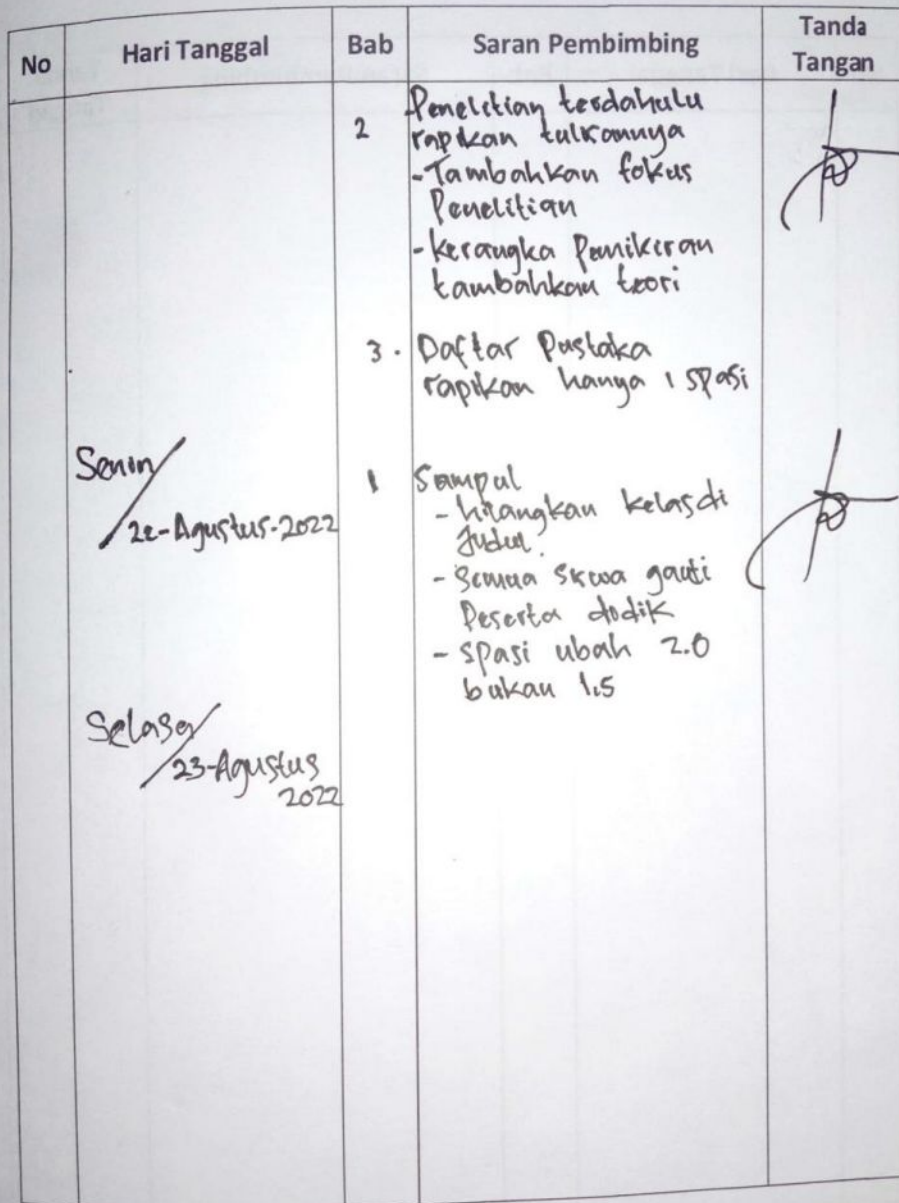 No
Hari Tanggal
Bab
Saran Pembimbing
Tanda
Tangan
2
Penelitian terdahulu
rapikan
- Tambahkan fokus
Penelitian
- kerangka Pemikiran
tambahkan teori
3. Daftar Pustaka
rapikan hanya 1 spasi
Senin/
22-Agustus-2022
1
Sampul
- hilangkan kelas di
Judul.
- Semua Siswa ganti
Peserta didik
- Spasi ubah 2.0
bukan 1.5
Selasa/
23-Agustus
2022